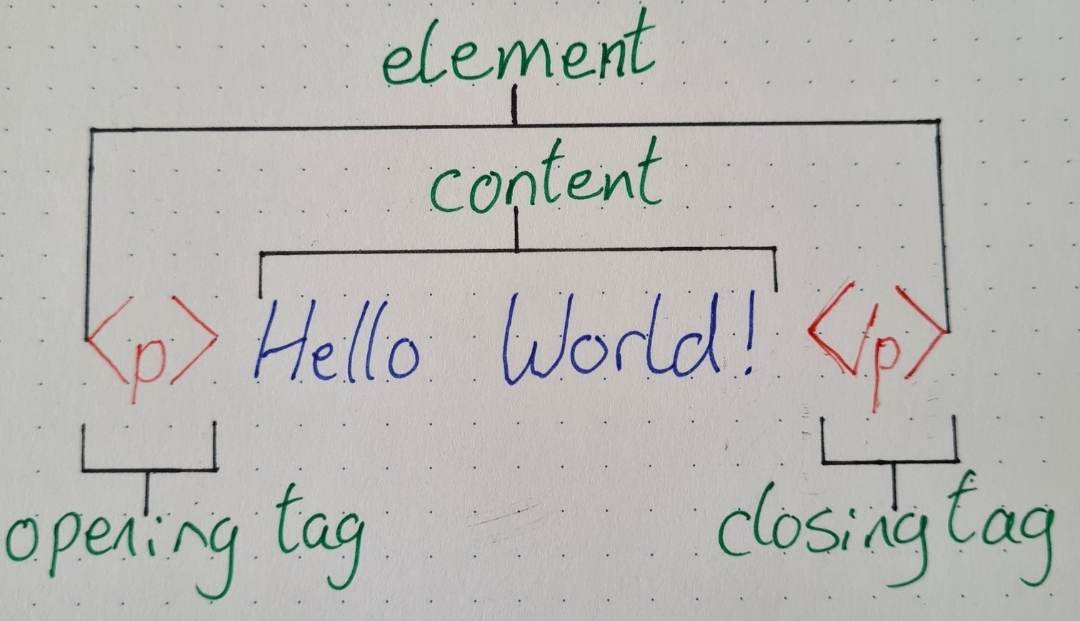 element
content
<p> Hello World! </p>
opening tag closing tag